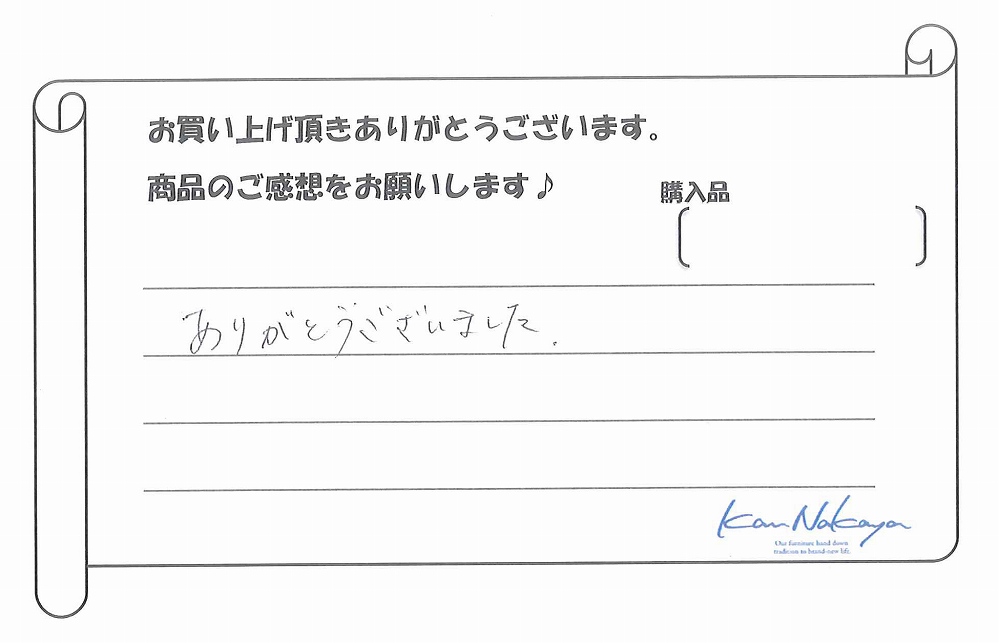 お買い上げ頂きありがとうございます。
商品のご感想をお願いします♪
購入品
ありがとうございました.
Kan Nakaya
Our furniture hand down
tradition to brand-new life.